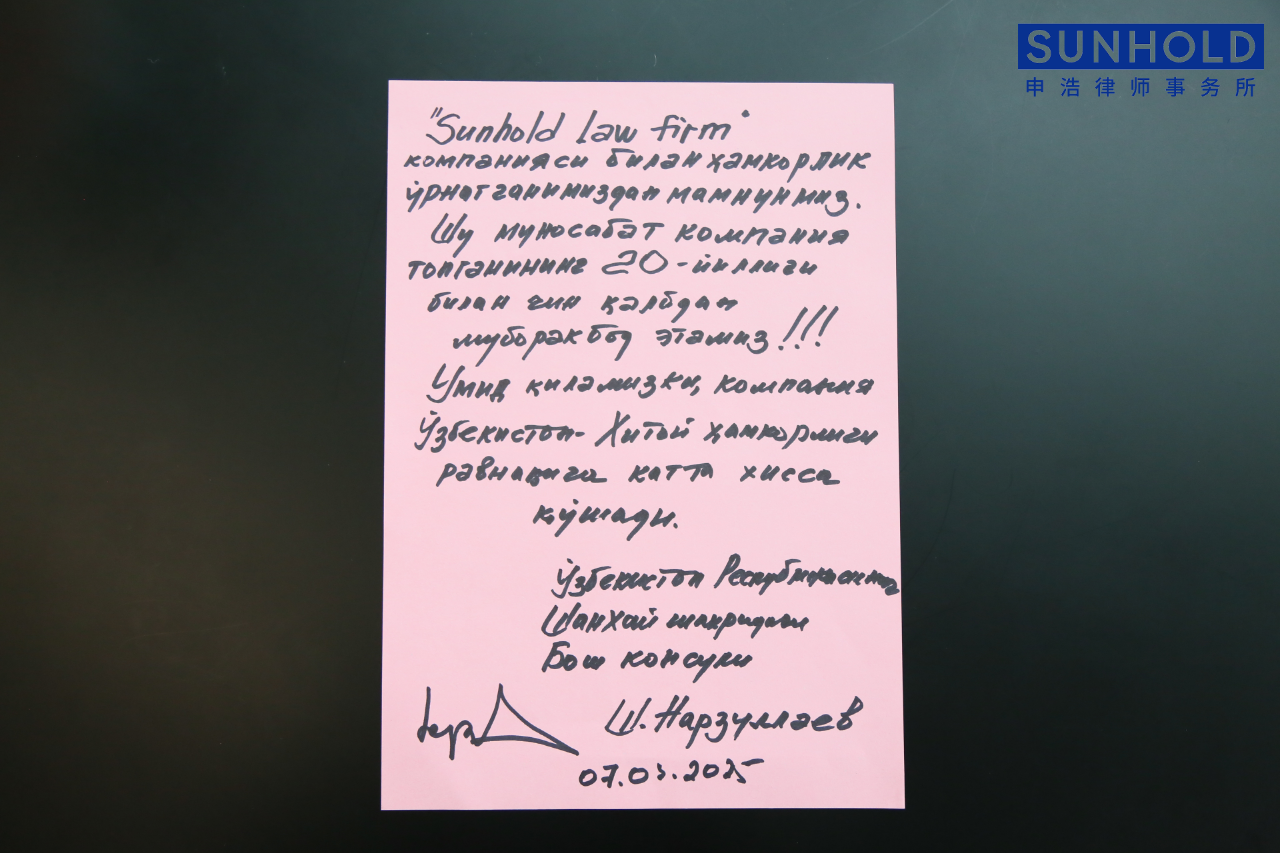 SUNHOLD
申浩律师事务所
"Sunhold law firm"
компанияси билан ҳамкорлик
ўрнатганимиздан мамнунмиз.
Шу муносабат компания
топганининг 20-йиллиги
билан чин қалбдан
муборакбод этамиз!!!
Умид қиламизки, компания
Ўзбекистон-Хитой ҳамкорлиги
равнақига катта хисса
қўшади.
Ўзбекистон Республикасининг
Шанхай шахридаги
Бош консули
Ш. Нарзуллаев
07.03.2025